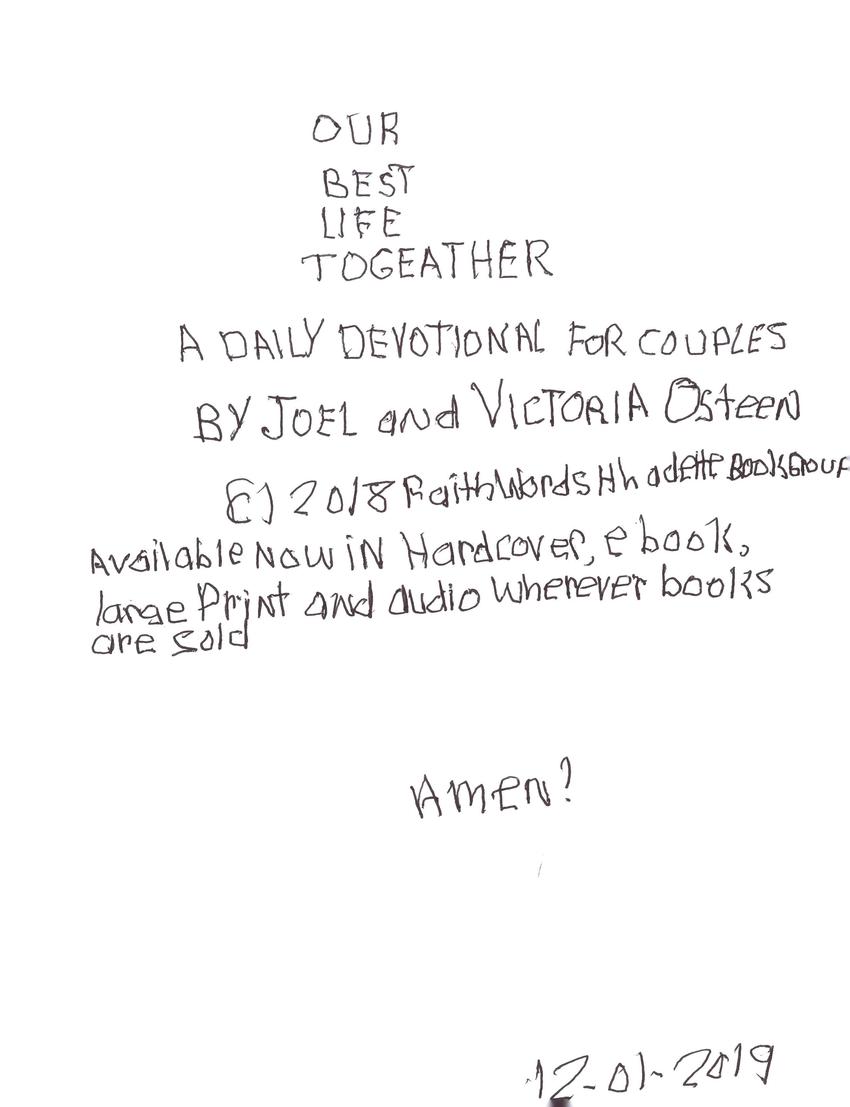 OUR
BEST
LIFE
TOGEATHER
A DAILY DEVOTIONAL FOR COUPLES
BY JOEL and VICTORIA Osteen
2018 FaithWords BOOKGROUP
Available NOW iN Hardcover, e book,
large Print and audio wherever books
are sold
Amen?
12-01-2019